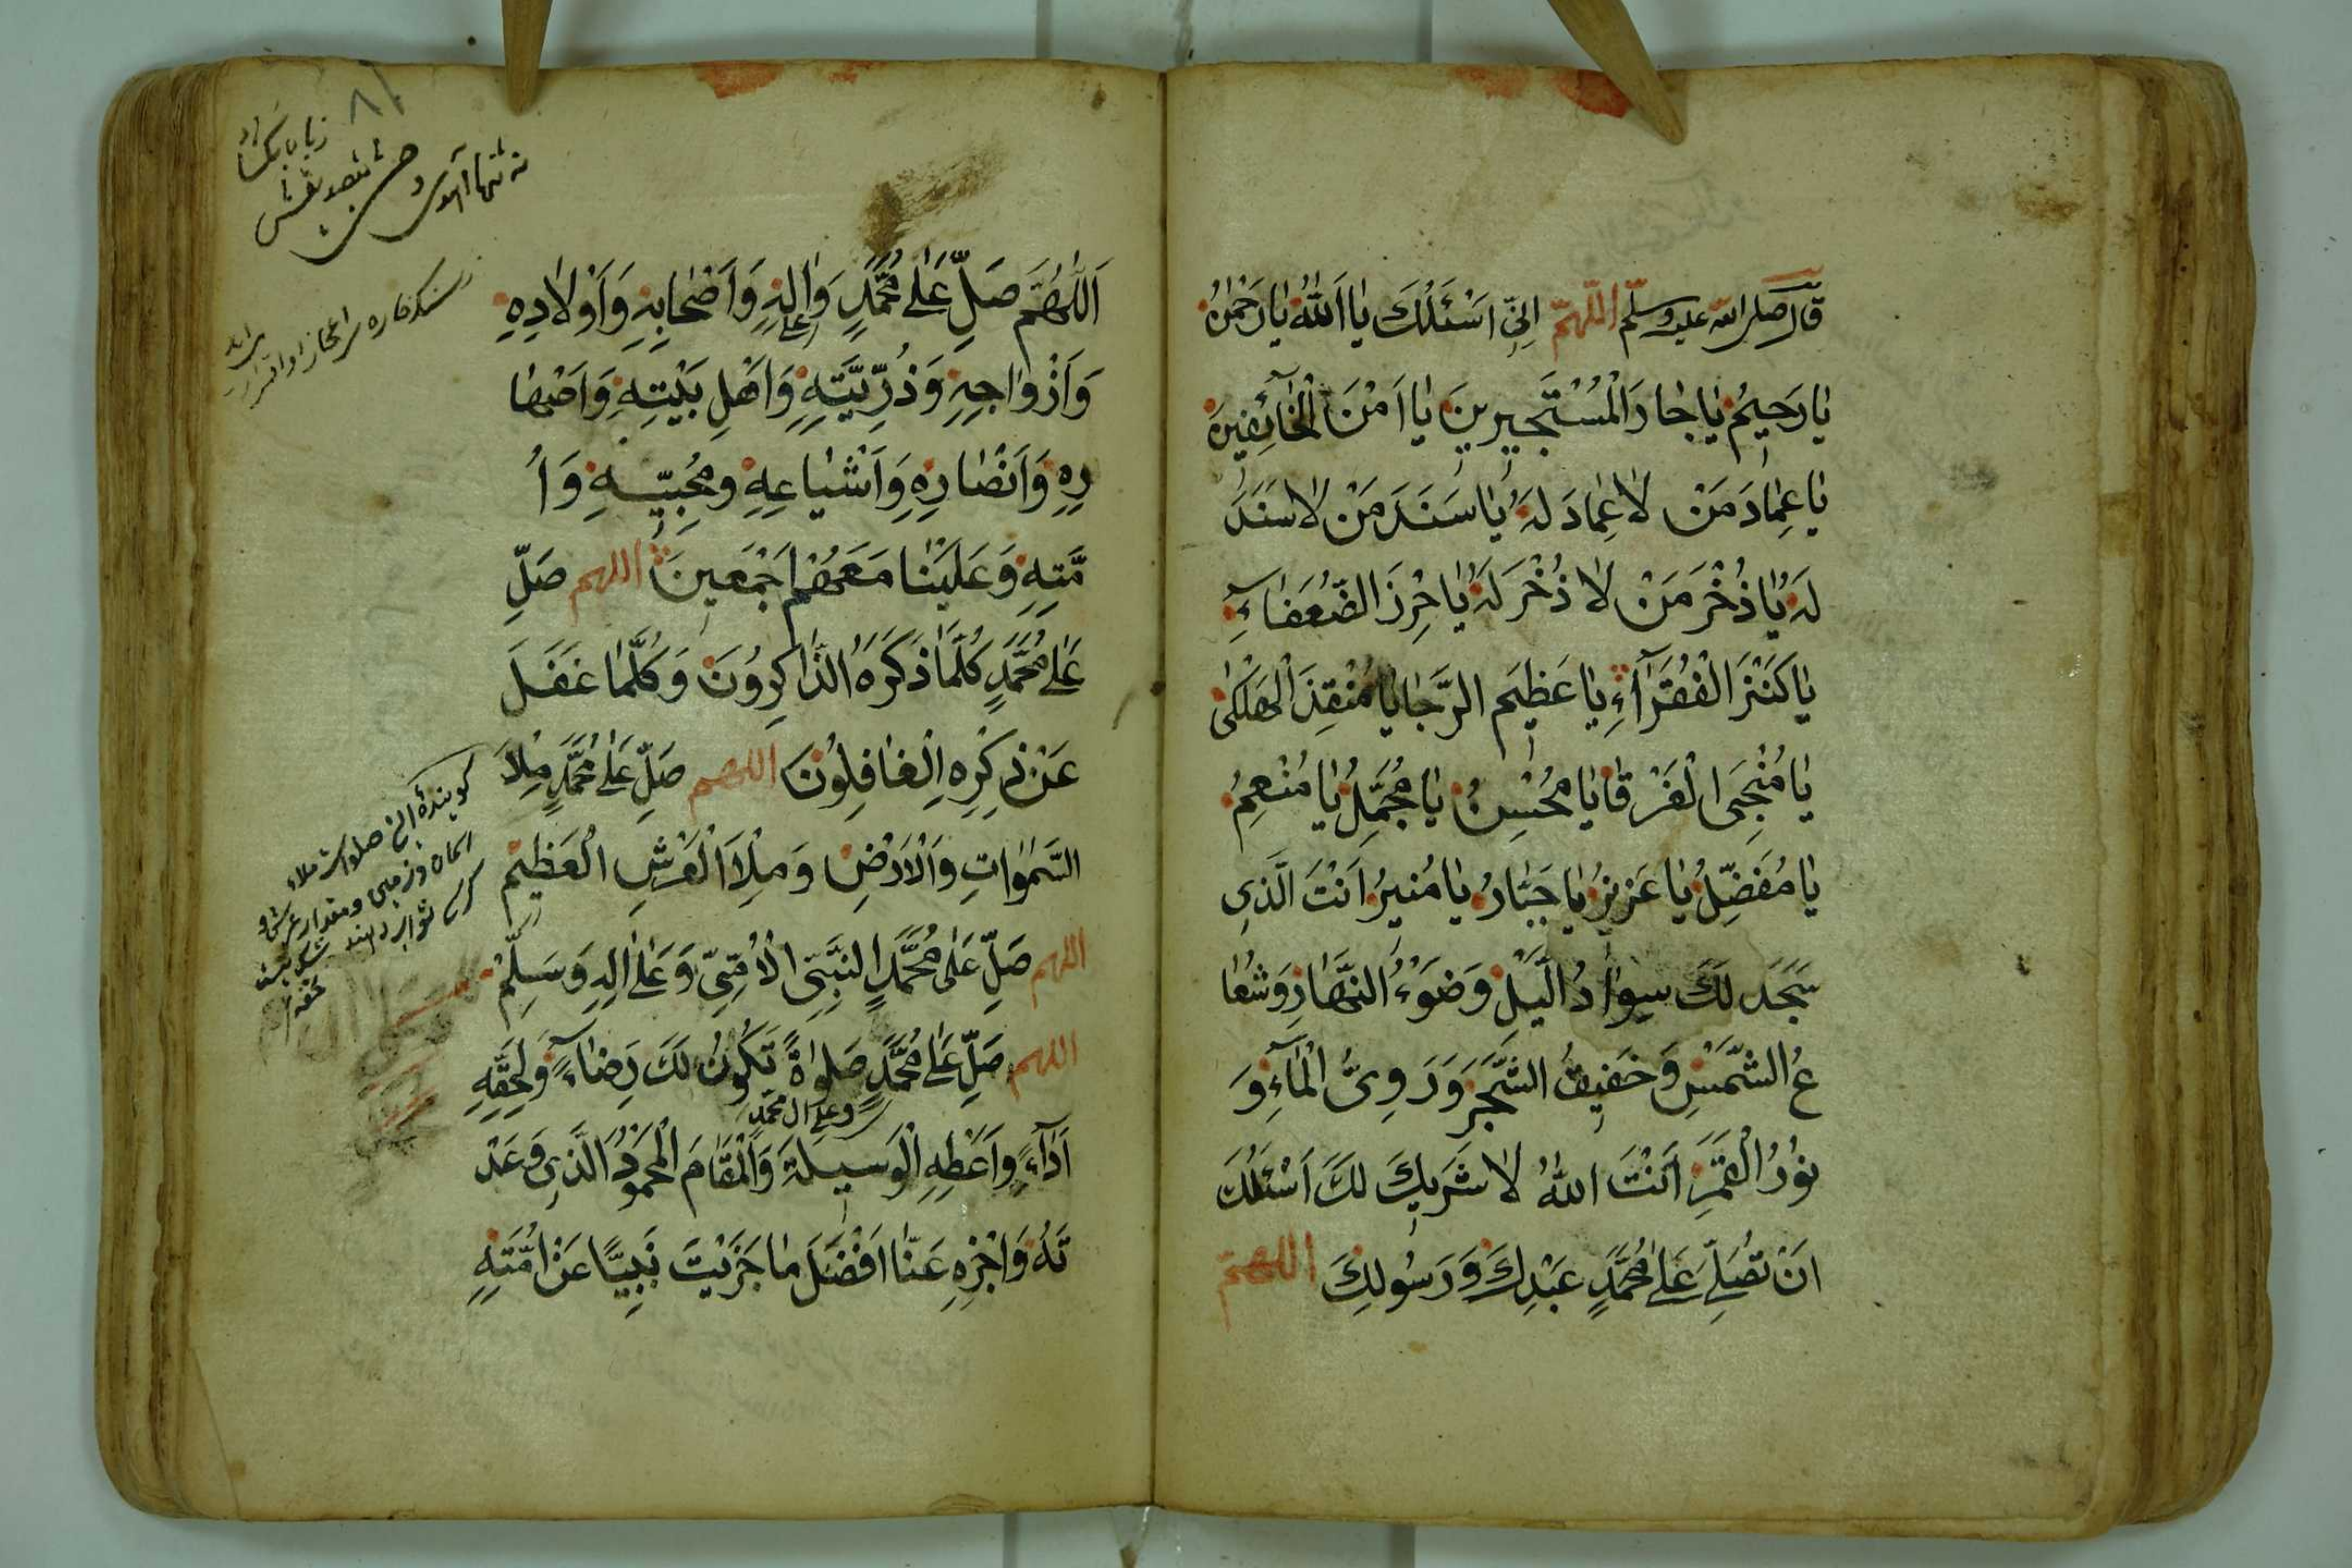 قَالَ صلى الله عليه وسلم اللّهمّ اِنِّي اَسْئَلُكَ يَا اَللّٰهُ يَا رَحْمٰنُ
يَا رَحِيمُ يَا جَارَ الْمُسْتَجِيرِينَ يَا اَمْنَ الْخَائِفِينَ
يَا عِمَادَ مَنْ لَا عِمَادَ لَهُ يَا سَنَدَ مَنْ لَا سَنَدَ
لَهُ يَا ذُخْرَ مَنْ لَا ذُخْرَ لَهُ يَا حِرْزَ الضُّعَفَاءِ
يَا كَنْزَ الْفُقَرَآءِ يَا عَظِيمَ الرَّجَا يَا مُنْقِذَ الْهَلْكَى
يَا مُنْجِيَ الْغَرْقَا يَا مُحْسِنُ يَا مُجَمِّلُ يَا مُنْعِمُ
يَا مُفَضِّلُ يَا عَزِيزُ يَا جَبَّارُ يَا مُنِيرُ اَنْتَ الَّذِي
سَجَدَ لَكَ سَوَادُ الَّيْلِ وَضَوْءُ النَّهَارِ وَشُعَا
عُ الشَّمْسِ وَحَفِيفُ الشَّجَرِ وَدَوِيُّ الْمَآءِ وَ
نُورُ الْقَمَرِ اَنْتَ اللّٰهُ لَا شَرِيكَ لَكَ اَسْئَلُكَ
اَنْ تُصَلِّيَ عَلٰى مُحَمَّدٍ عَبْدِكَ وَرَسُولِكَ اللهمّ
اَللّٰهُمَّ صَلِّ عَلٰى مُحَمَّدٍ وَاٰلِهِ وَاَصْحَابِهِ وَاَوْلَادِهِ
وَاَزْوَاجِهِ وَذُرِّيَّتِهِ وَاَهْلِ بَيْتِهِ وَاَصْهَا
رِهِ وَاَنْصَارِهِ وَاَشْيَاعِهِ وَمُحِبِّيهِ وَاُ
مَّتِهِ وَعَلَيْنَا مَعَهُمْ اَجْمَعِينَ اللهم صَلِّ
عَلٰى مُحَمَّدٍ كُلَّمَا ذَكَرَهُ الذَّاكِرُونَ وَكُلَّمَا غَفَلَ
عَنْ ذِكْرِهِ الْغَافِلُونَ اللهم صَلِّ عَلٰى مُحَمَّدٍ مِلْاَ
السَّمٰوَاتِ وَالْاَرْضِ وَمِلْاَ الْعَرْشِ الْعَظِيمِ
اللهم صَلِّ عَلٰى مُحَمَّدٍ النَّبِيِّ الْاُمِّيِّ وَعَلٰى اٰلِهِ وَسَلِّمْ
اللهم صَلِّ عَلٰى مُحَمَّدٍ صَلٰوةً تَكُونُ لَكَ رِضَاءً وَلِحَقِّهِ
وعلى ال محمد
اَدَآءً وَاَعْطِهِ الْوَسِيلَةَ وَالْمَقَامَ الْمَحْمُودَ الَّذِي وَعَدْ
تَهُ وَاجْزِهِ عَنَّا اَفْضَلَ مَا جَزَيْتَ نَبِيًّا عَنْ اُمَّتِهِ
٨١
كويندۀ اين صلوات ملاء
اسمان وزمين ومقدار عرش و
كرسى ثواب دهند